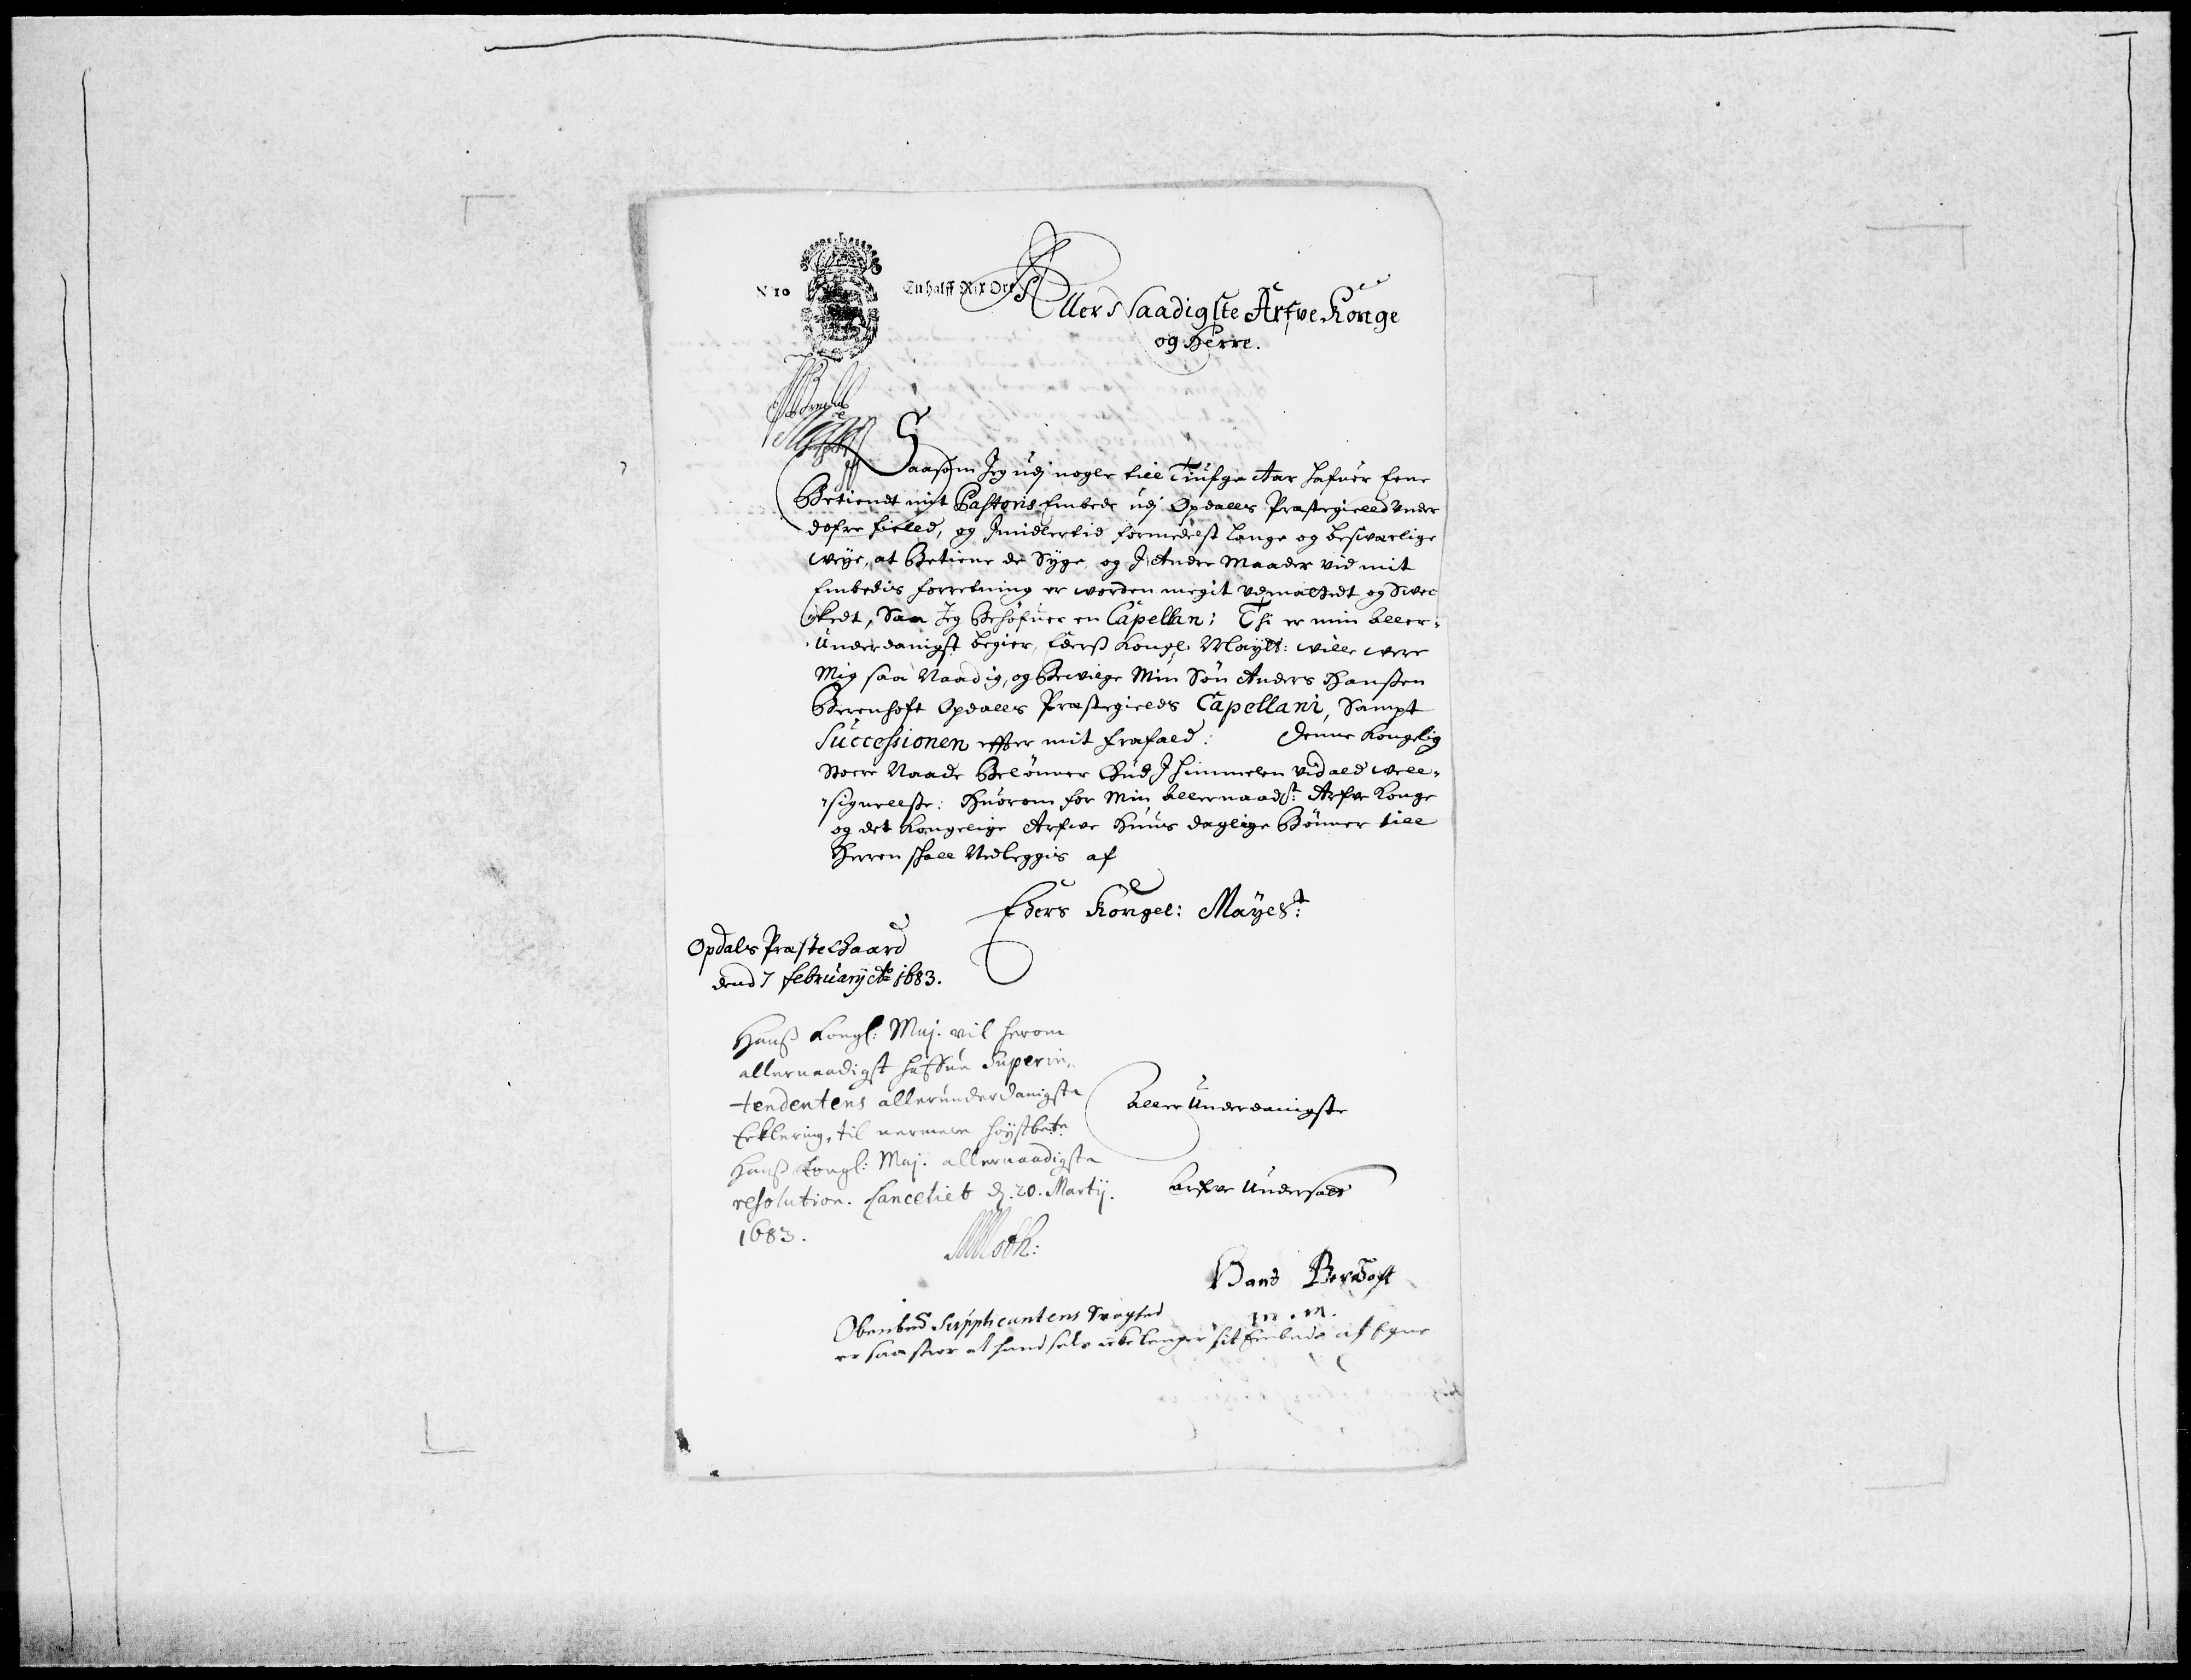 N 10
En halff Rix Ort
Aller Naadigste Arfve Konge
og Herre.
Saasom Jeg udj nogle till Tiufge Aar hafuer Eene
Betiendt mit Pastoris Embede udj Opdalls Præstegielld under
dofre fielld, og Imidlertid formedelst lange og besværlige
Veye, at Betiene de Syge, og J Andre Maader vid mit
Embedis forretning er vorden megit udmattedt og Svec
kedt, Saa Jeg Behøfuer en Capellan; Thi er min aller-
Underdanigst begier, Ederß Kongl. Mayst: wille were
Mig saa Naadig, og Bevilge Min Søn Anders Hanßen
Bernhoft Opdalls Præstegields Capellani, Sampt
Successionen effter mit frafald: Denne Kongelig
Store Naade Belønner Gud J himmelen vid ald vell-
signellße: Huorom for Min Allernaadst: Arfve Konge
og det Kongelige Arfwe Huus daglige Bønner till
Herren skall Nedleggis af
Eders Kongel: Mayest:
Opdals Præstegaard
dend 7 February Ao 1683.
Hanß Kongl: Maj. vil herom
allernaadigst haffue Superin-
tendentens allerunderdanigste
Erklering, til nermere høystbete
Hanß Kongl: Maj. allernaadigste
resolution. Canceliet d. 20. Martij.
1683.
Moth:
Aller Underdanigste
Arfve Undersaat
Hans Bernhoft
m. m.
Obenbed Supplicantens Svaghed
er saa stor at hand selv icke lenger sit Embede af Egne